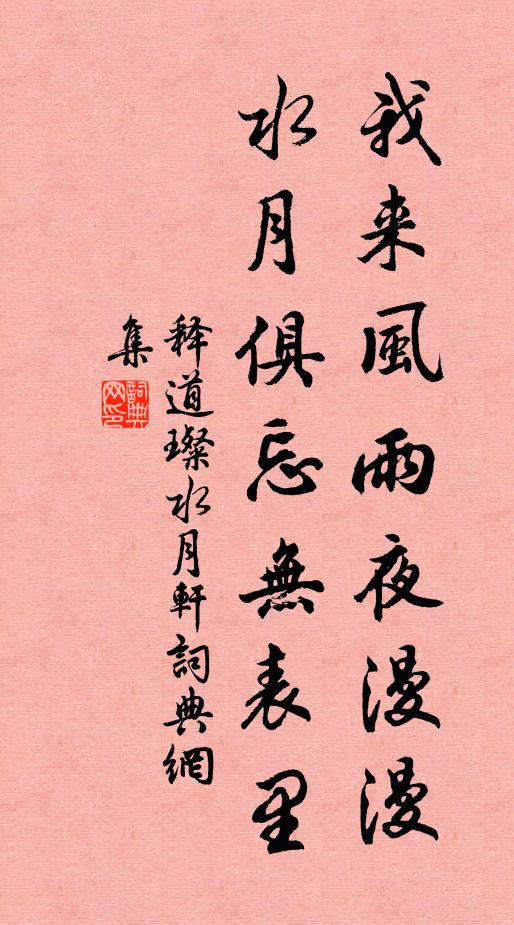 我来風雨夜漫漫
水月俱忘無表里
释道璨水月軒詞典網
集
詞典网印